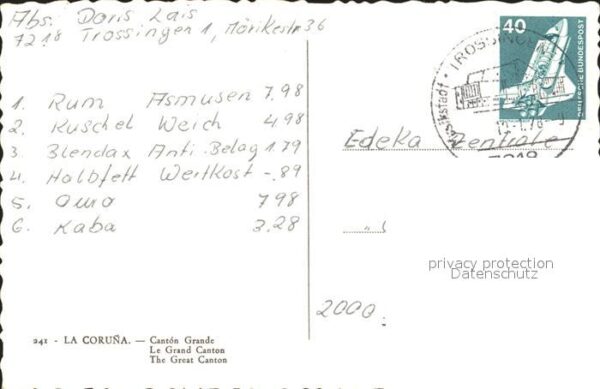 Abs. Doris Lais
7218 Trossingen 1, Mörikestr 36
1. Rum Asmusen 7.98
2. Kuschel Weich 4 98
3. Blendax Anti Belag 1 79
4. Halbfett Weitkost -.89
5. Omo 7 98
6. Kaba 3.28
40
DEUTSCHE BUNDESPOST
TROSSINGEN
Musikstadt
7218
Edeka Zentrale
privacy protection
Datenschutz
2000
241 - LA CORUÑA. — Cantón Grande
Le Grand Canton
The Great Canton